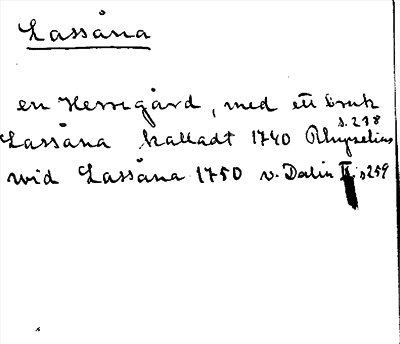 Lassåna
en Herregård, med ett bruk
s. 238
Lassåna kalladt 1740 Rhyzelius
wid Lassåna 1750 v. Dalin II. s 259